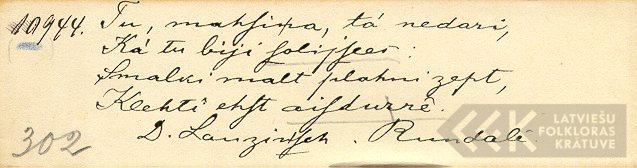 10944. Tu, mahsiņa, tá nedari,
Ká tu biji solijsees:
Smalki malt plahni zept,
Klehtî ehst aisdurrê.
302 D. Lauzinsch. Rundalê.
LATVIEŠU
FOLKLORAS
KRĀTUVE